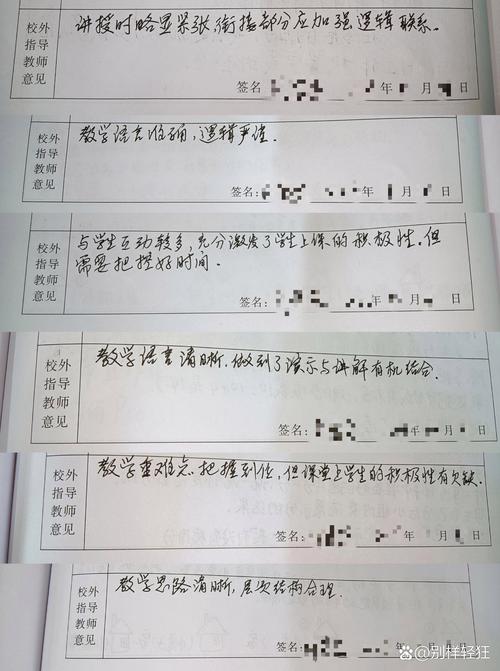 校外
指导
教师
意见
讲授时略显紧张,衔接部分应加强逻辑联系。
签名: 年 月 日
校外
指导
教师
意见
教学语言准确,逻辑严谨。
签名: 年 月 日
校外
指导
教师
意见
与学生互动较多,充分激发了学生上课的积极性。但
需要把控好时间。
签名: 年 月 日
校外
指导
教师
意见
教学语言清晰,做到了演示与讲解有机结合.
签名: 年 月 日
校外
指导
教师
意见
教学重难点把握到位,但课堂上学生的积极性有欠缺.
签名: 年 月 日
校外
指导
教师
意见
教学思路清晰,层次结构合理.
签名: 年 月 日
@别样轻狂